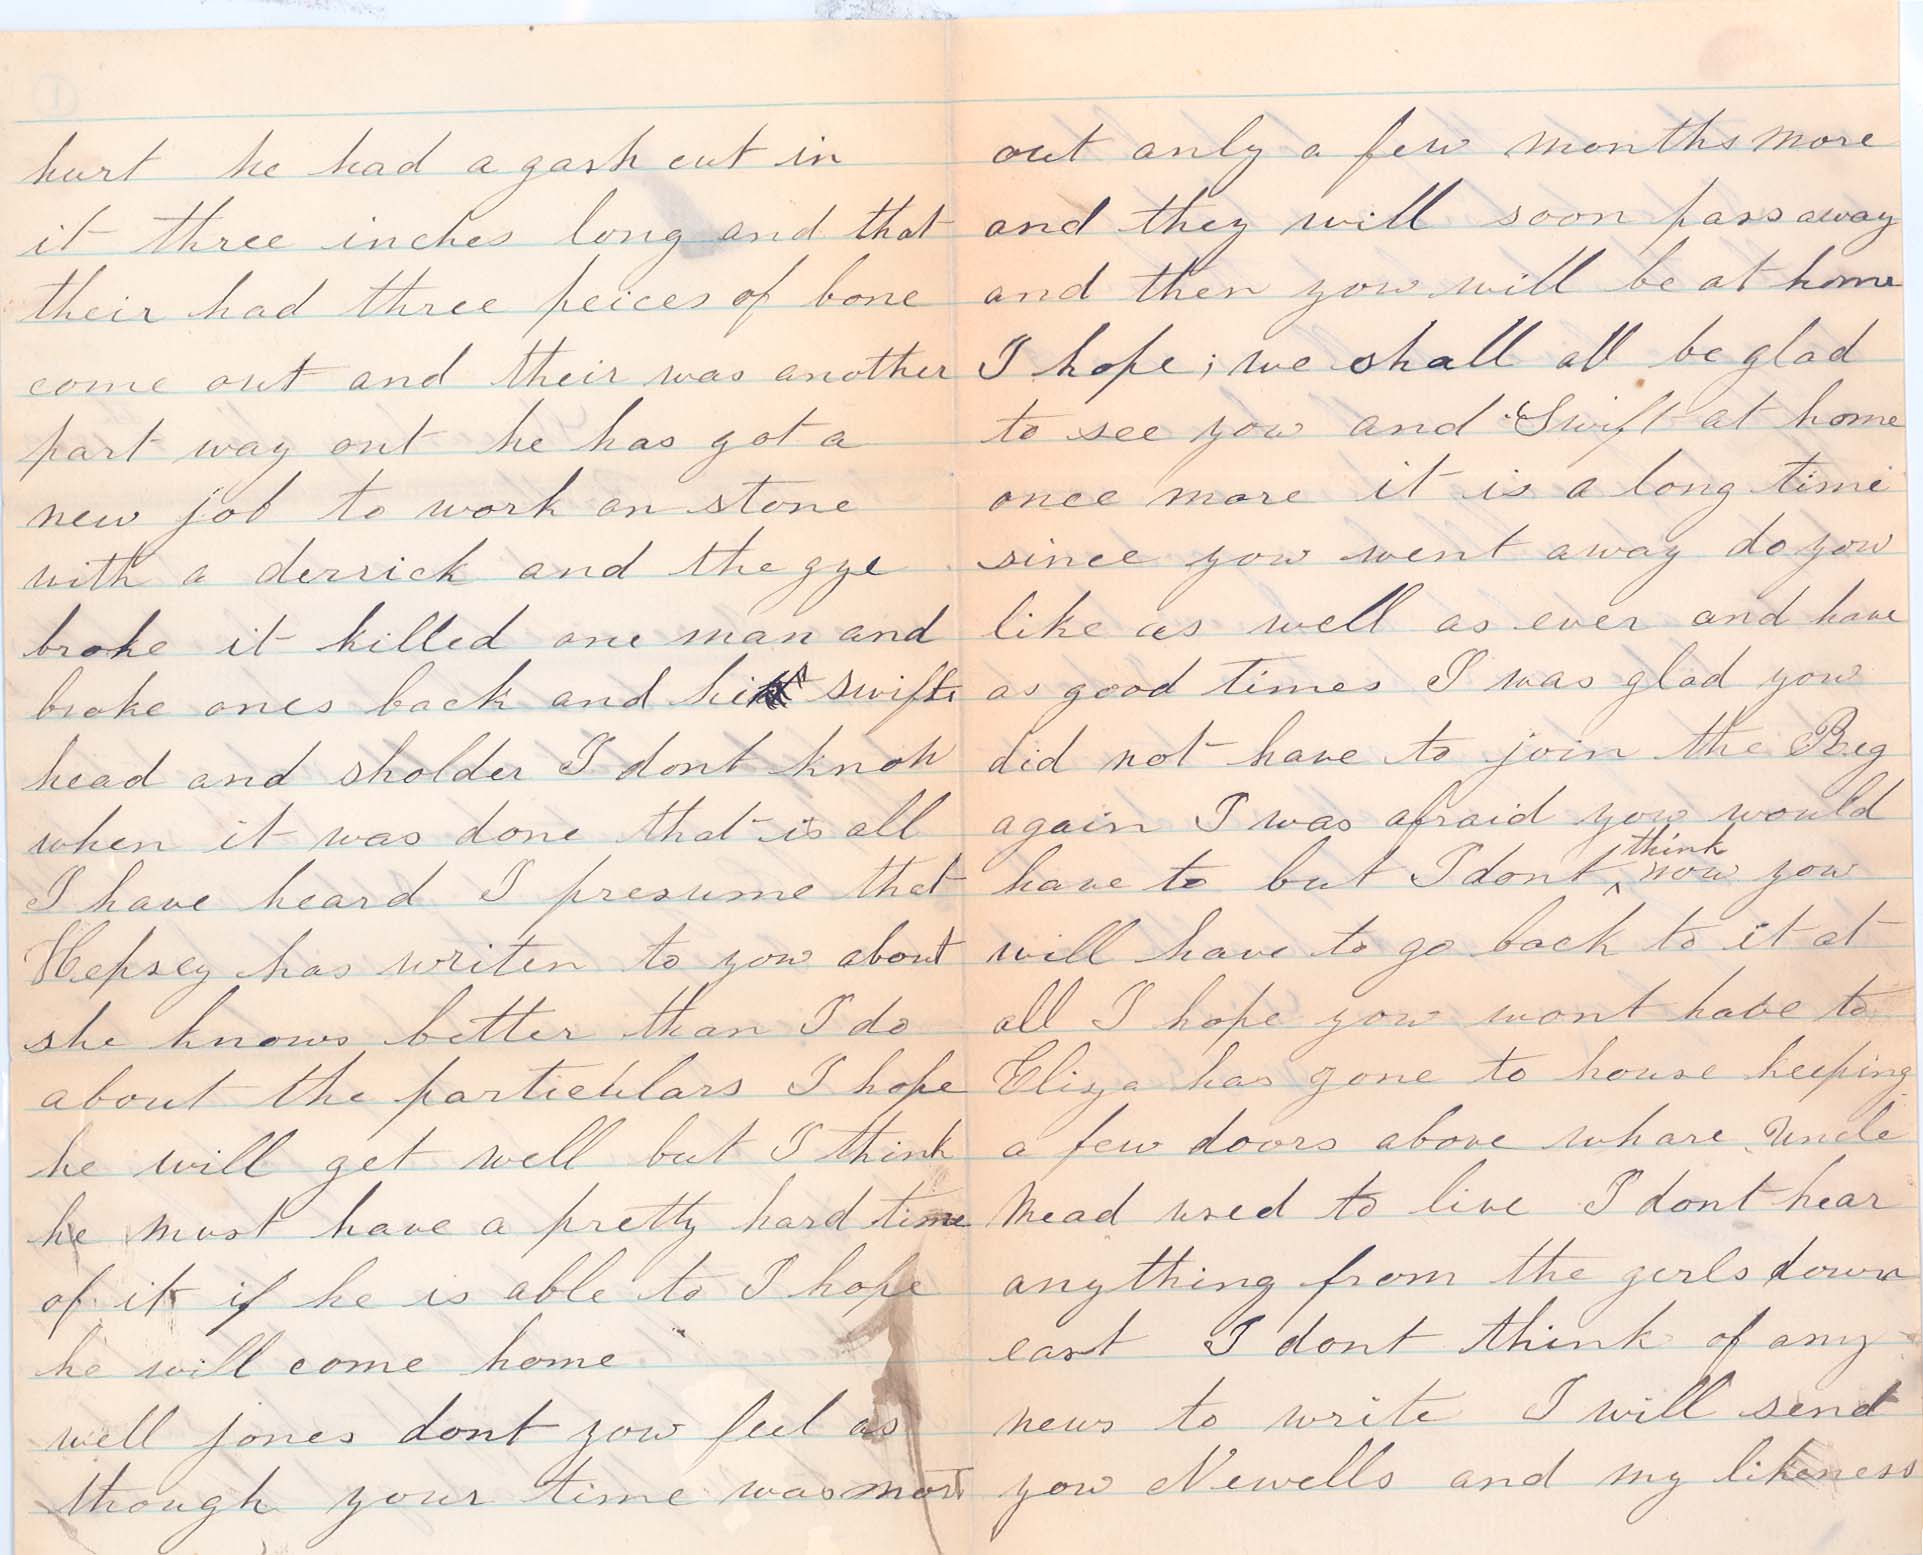 hurt he had a gash cut in
it three inches long and that
their had three peices of bone
come out and their was another
part way out he has got a
new job to work on stone
with a derrick and the gye
broke it killed one man and
broke ones back and hit swifts
head and sholder I dont know
when it was done that is all
I have heard I presume that
Hepsey has writen to you about
she knows better than I do
about the particulars I hope
he will get well but I think
he must have a pretty hard time
of it if he is able to I hope
he will come home
well jones dont you feel as
though your time was most
out only a few months more
and they will soon pass away
and then you will be at home
I hope; we shall all be glad
to see you and Swift at home
once more it is a long time
since you went away do you
like as well as ever and have
as good times I was glad you
did not have to join the Reg
again I was afraid you would
have to but I dont think now you
will have to go back to it at
all I hope you wont have to
Eliza has gone to house keeping
a few doors above whare Uncle
Mead used to live I dont hear
anything from the girls down
east I dont think of any
news to write I will send
you Newells and my likeness